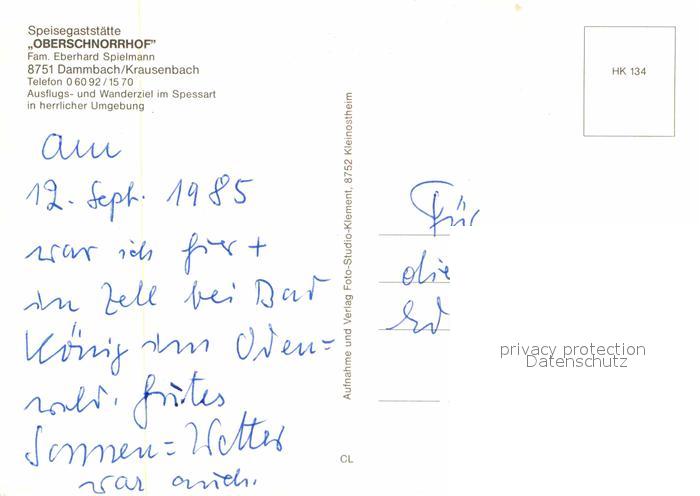 Speisegaststätte
„OBERSCHNORRHOF"
Fam. Eberhard Spielmann
8751 Dammbach/Krausenbach
Telefon 0 60 92 / 15 70
Ausflugs- und Wanderziel im Spessart
in herrlicher Umgebung
Am
12. Sept. 1985
war ich hier +
in Zell bei Bad
König im Oden=
wald. Gutes
Sonnen=Wetter
war auch.
CL
Aufnahme und Verlag Foto-Studio-Klement, 8752 Kleinostheim
HK 134
Für
die
privacy protection
Datenschutz